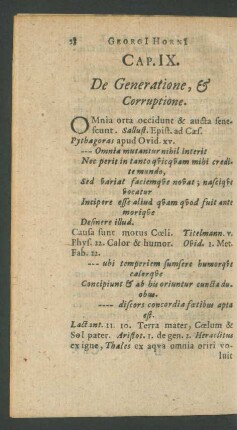 28 GEORGI HORNI
CAP. IX.
De Generatione, &
Corruptione.
OMnia orta occidunt & aucta sene-
scunt. Sallust. Epist. ad Cæs.
Pythagoras apud Ovid. xv.
--- Omnia mutantur nihil interit
Nec perit in tanto qvicqvam mihi credi-
te mundo,
Sed variat faciemqve novat; nascíqve
vocatur
Incipere esse aliud qvam qvod fuit ante
moriqve
Desinere illud.
Causa sunt motus Cœli. Titelmann. v.
Phys. 12. Calor & humor. Ovid. 1. Met.
Fab. 22.
--- ubi temperiem sumsere humorqve
calorqve
Concipiunt & ab his oriuntur cuncta du-
obus.
---- discors concordia fœtibus apta
est.
Lactant. 11. 10. Terra mater, Cœlum &
Sol pater. Aristot. 1. de gen. 2. Heraclitus
ex igne, Thales ex aqva omnia oriri vo-
luit